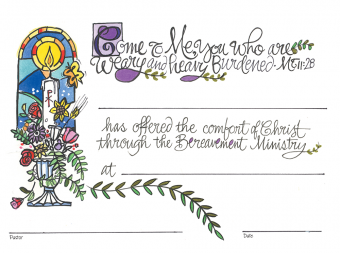 Come to Me, you who are
Weary and heavy Burdened - Mt 11:28
has offered the comfort of Christ
through the Bereavement Ministry
at
Pastor
Date